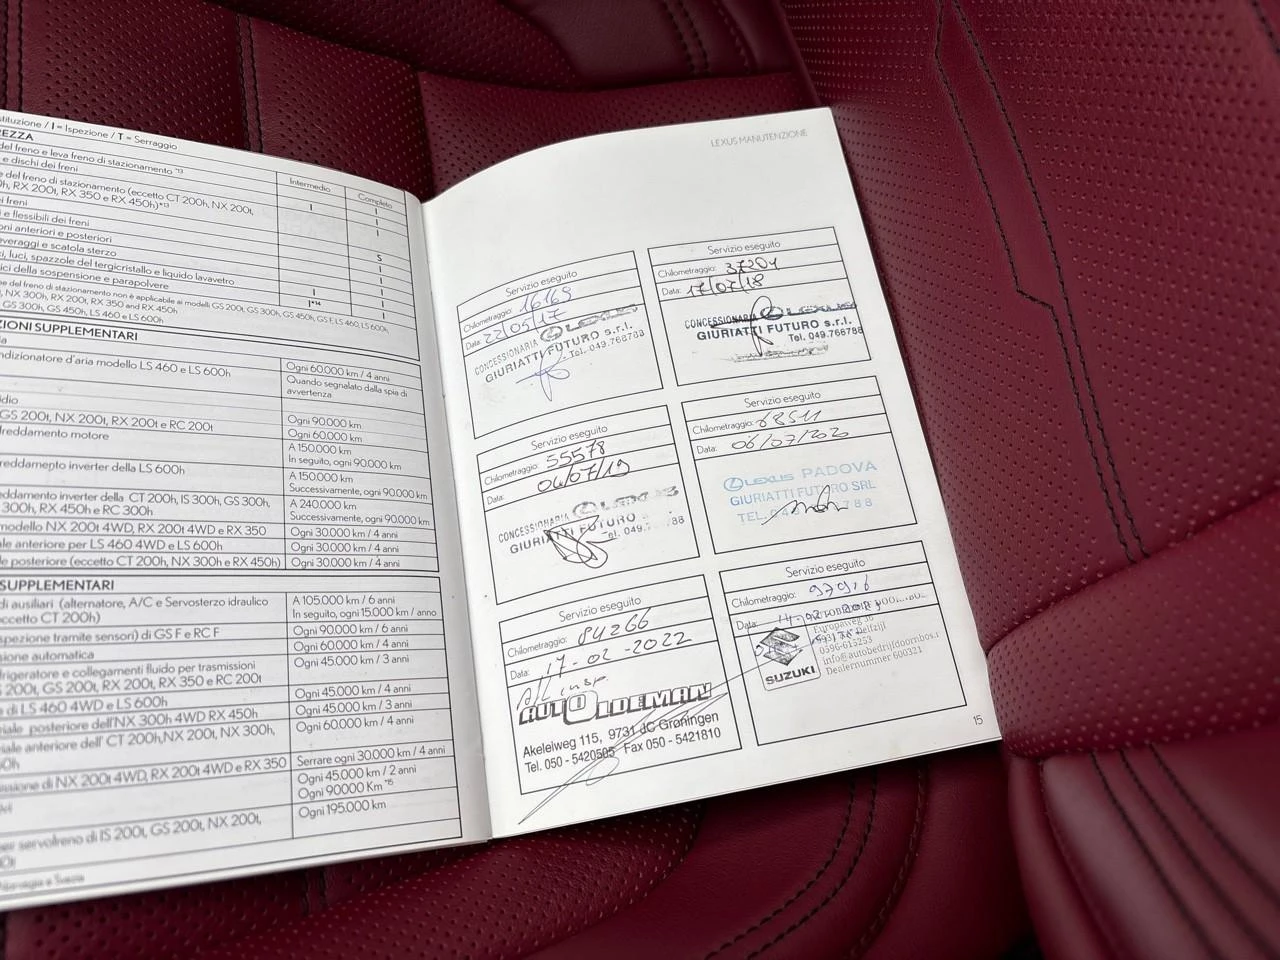 stituzione / I = Ispezione / T = Serraggio
REZZA
Intermedio
Completo
del freno e leva freno di stazionamento *13
I
I
e dischi dei freni
I
e del freno di stazionamento (eccetto CT 200h, NX 200t,
0h, RX 200t, RX 350 e RX 450h)*13
I
i freni
i e flessibili dei freni
oni anteriori e posteriori
S
everaggi e scatola sterzo
I
i, luci, spazzole del tergicristallo e liquido lavavetro
I
I
ici della sospensione e parapolvere
I*14
I
ne del freno di stazionamento non è applicabile ai modelli GS 200t, GS 300h, GS 450h, GS F, LS 460, LS 600h,
, NX 300h, RX 200t, RX 350 and RX 450h
, GS 300h, GS 450h, LS 460 e LS 600h
ZIONI SUPPLEMENTARI
ndizionatore d'aria modello LS 460 e LS 600h
Ogni 60.000 km / 4 anni
Quando segnalato dalla spia di
avvertenza
dio
GS 200t, NX 200t, RX 200t e RC 200t
Ogni 90.000 km
Ogni 60.000 km
freddamento motore
A 150.000 km
In seguito, ogni 90.000 km
reddamento inverter della LS 600h
A 150.000 km
Successivamente, ogni 90.000 km
eddamento inverter della CT 200h, IS 300h, GS 300h,
300h, RX 450h e RC 300h
A 240.000 km
Successivamente, ogni 90.000 km
modello NX 200t 4WD, RX 200t 4WD e RX 350
Ogni 30.000 km / 4 anni
le anteriore per LS 460 4WD e LS 600h
Ogni 30.000 km / 4 anni
le posteriore (eccetto CT 200h, NX 300h e RX 450h)
Ogni 30.000 km / 4 anni
SUPPLEMENTARI
di ausiliari (alternatore, A/C e Servosterzo idraulico
eccetto CT 200h)
A 105.000 km / 6 anni
In seguito, ogni 15.000 km / anno
spezione tramite sensori) di GS F e RC F
Ogni 90.000 km / 6 anni
sione automatica
Ogni 60.000 km / 4 anni
frigeratore e collegamenti fluido per trasmissioni
200t, GS 200t, RX 200t, RX 350 e RC 200t
Ogni 45.000 km / 3 anni
e di LS 460 4WD e LS 600h
Ogni 45.000 km / 4 anni
iale posteriore dell'NX 300h 4WD RX 450h
Ogni 45.000 km / 3 anni
iale anteriore dell' CT 200h, NX 200t, NX 300h,
0h
Ogni 60.000 km / 4 anni
issione di NX 200t 4WD, RX 200t 4WD e RX 350
Serrare ogni 30.000 km / 4 anni
Ogni 45.000 km / 2 anni
Ogni 90000 Km *15
per servofreno di IS 200t, GS 200t, NX 200t,
Ogni 195.000 km
Norvegia e Svezia
LEXUS MANUTENZIONE
Servizio eseguito
Chilometraggio: 16169
Data: 22/05/17
CONCESSIONARIA LEXUS
GIURIATTI FUTURO s.r.l.
Tel. 049.768788
Servizio eseguito
Chilometraggio: 37204
Data: 17/07/18
CONCESSIONARIA LEXUS
GIURIATTI FUTURO s.r.l.
Tel. 049.768788
Servizio eseguito
Chilometraggio: 55578
Data: 04/07/19
CONCESSIONARIA LEXUS
GIURIATTI FUTURO
Tel. 049. 788
Servizio eseguito
Chilometraggio: 68511
Data: 06/07/2020
LEXUS PADOVA
GIURIATTI FUTURO SRL
TEL. 788
Servizio eseguito
Chilometraggio: 84266
Data: 17-02-2022
insp.
AUTO IDEMAN
Akelelweg 115, 9731 JC Groningen
Tel. 050 - 5420505 Fax 050 - 5421810
Servizio eseguito
Chilometraggio:
Data:
Europaweg 36
Delfzijl
0596-615253
info@autobedrijfdoornbos.n
Dealernummer 600321
SUZUKI
15